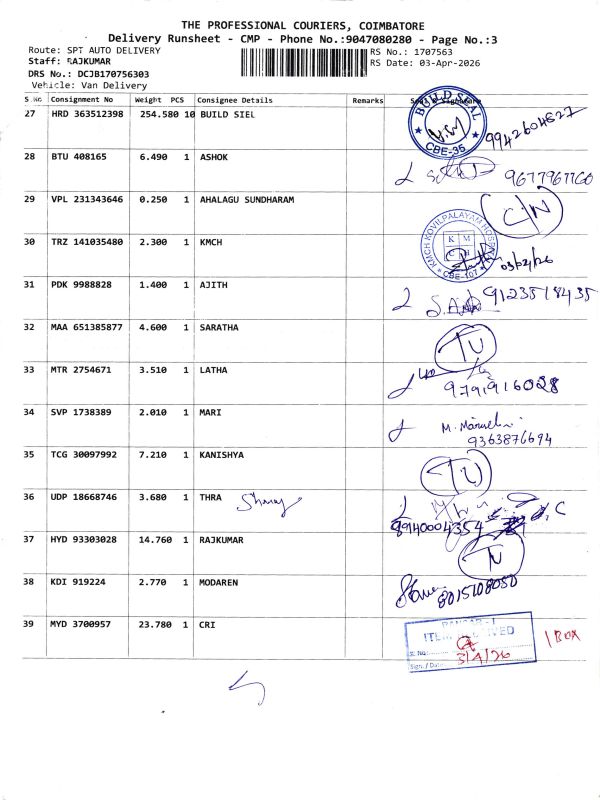 THE PROFESSIONAL COURIERS, COIMBATORE
Delivery Runsheet - CMP - Phone No.:9047080280 - Page No.:3
Route: SPT AUTO DELIVERY
RS No.: 1707563
Staff: RAJKUMAR
RS Date: 03-Apr-2026
DRS No.: DCJB170756303
Vehicle: Van Delivery
S.No Consignment No Weight PCS Consignee Details Remarks
27 HRD 363512398 254.580 10 BUILD SIEL
BUILD SEAL CBE-35
9942604827
28 BTU 408165 6.490 1 ASHOK
9677967760
29 VPL 231343646 0.250 1 AHALAGU SUNDHARAM
C/N
30 TRZ 141035480 2.300 1 KMCH
KMCH KOVILPALAYAM HOSPITAL CBE-107
31 PDK 9988828 1.400 1 AJITH
9123518435
32 MAA 651385877 4.600 1 SARATHA
33 MTR 2754671 3.510 1 LATHA
9791916028
34 SVP 1738389 2.010 1 MARI
9363876694
35 TCG 30097992 7.210 1 KANISHYA
36 UDP 18668746 3.680 1 THRA
37 HYD 93303028 14.760 1 RAJKUMAR
38 KDI 919224 2.770 1 MODAREN
8015708050
39 MYD 3700957 23.780 1 CRI
3/4/26
1 BOX
Sign./Date: